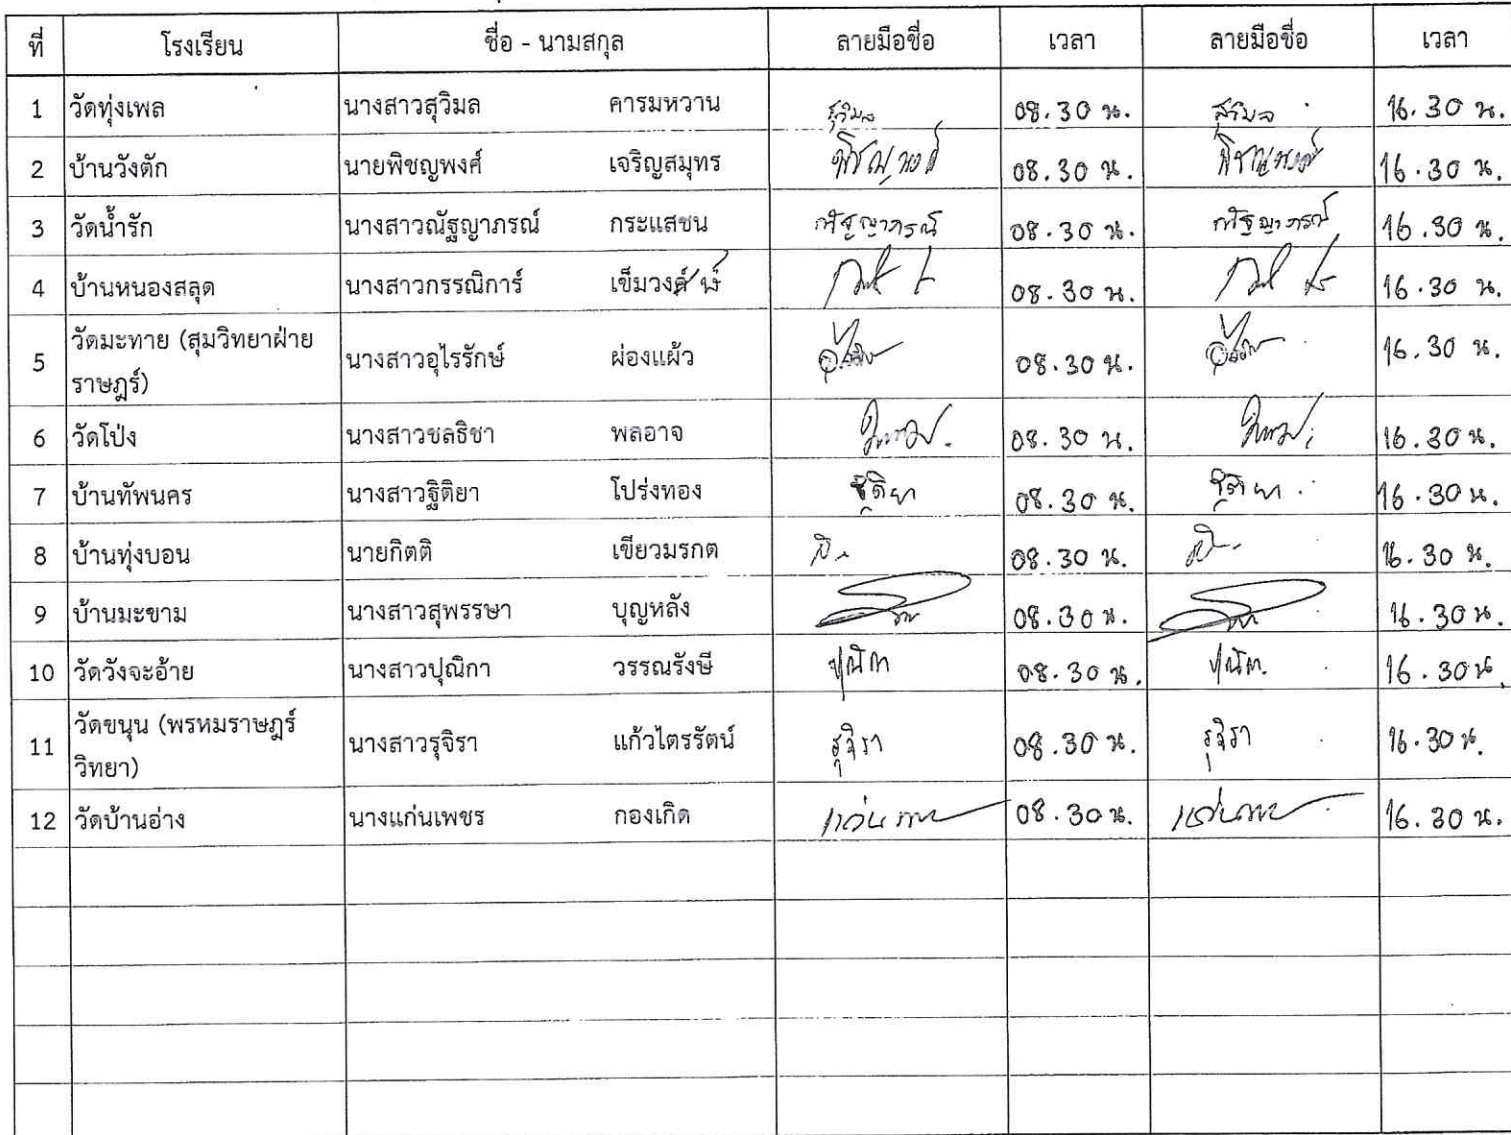 ที่ โรงเรียน ชื่อ - นามสกุล ลายมือชื่อ เวลา ลายมือชื่อ เวลา
1 วัดทุ่งเพล นางสาวสุวิมล คารมหวาน สุวิมล 08.30 น. สุวิมล 16.30 น.
2 บ้านวังตัก นายพิชญพงศ์ เจริญสมุทร พิชญพงศ์ 08.30 น. พิชญพงศ์ 16.30 น.
3 วัดน้ำรัก นางสาวณัฐญาภรณ์ กระแสชน ณัฐญาภรณ์ 08.30 น. ณัฐญาภรณ์ 16.30 น.
4 บ้านหนองสลุด นางสาวกรรณิการ์ เข็มวงค์ ษ์ 08.30 น. 16.30 น.
5 วัดมะทาย (สุมวิทยาฝ่าย
ราษฎร์) นางสาวอุไรรักษ์ ผ่องแผ้ว 08.30 น. 16.30 น.
6 วัดโป่ง นางสาวชลธิชา พลอาจ 08.30 น. 16.30 น.
7 บ้านทัพนคร นางสาวฐิติยา โปร่งทอง ฐิติยา 08.30 น. ฐิติยา 16.30 น.
8 บ้านทุ่งบอน นายกิตติ เขียวมรกต 08.30 น. 16.30 น.
9 บ้านมะขาม นางสาวสุพรรษา บุญหลัง 08.30 น. 16.30 น.
10 วัดวังจะอ้าย นางสาวปุณิกา วรรณรังษี ปุณิกา 08.30 น. ปุณิกา 16.30 น.
11 วัดขนุน (พรหมราษฎร์
วิทยา) นางสาวรุจิรา แก้วไตรรัตน์ รุจิรา 08.30 น. รุจิรา 16.30 น.
12 วัดบ้านอ่าง นางแก่นเพชร กองเกิด 08.30 น. 16.30 น.